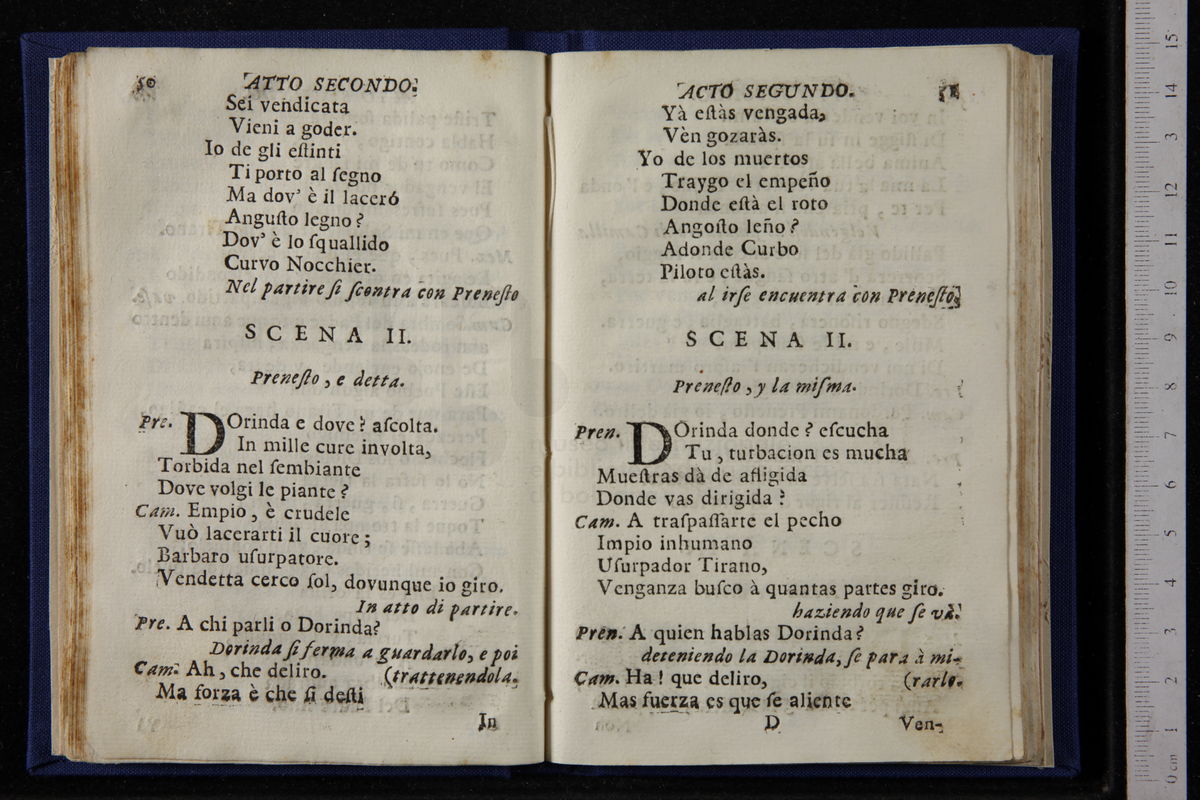 50
ATTO SECONDO.
Sei vendicata
Vieni a goder.
Io de gli eſtinti
Ti porto al ſegno
Ma dov' è il laceró
Anguſto legno?
Dov' è lo ſquallido
Curvo Nocchier.
Nel partire ſi ſcontra con Preneſto
SCENA II.
Preneſto, e detta.
Pre. DOrinda e dove? aſcolta.
In mille cure involta,
Torbida nel ſembiante
Dove volgi le piante?
Cam. Empio, è crudele
Vuò lacerarti il cuore;
Barbaro uſurpatore.
Vendetta cerco ſol, dovunque io giro.
In atto di partire.
Pre. A chi parli o Dorinda?
Dorinda ſi ferma a guardarlo, e poi
Cam. Ah, che deliro. (trattenendola.
Ma forza è che ſi deſti
In
ACTO SEGUNDO. 51
Yà eſtàs vengada,
Vèn gozaràs.
Yo de los muertos
Traygo el empeño
Donde eſtà el roto
Angoſto leño?
Adonde Curbo
Piloto eſtàs.
al irſe encuentra con Preneſto.
SCENA II.
Preneſto, y la miſma.
Pren. DOrinda donde? eſcucha
Tu, turbacion es mucha
Mueſtras dà de afligida
Donde vas dirigida?
Cam. A traſpaſſarte el pecho
Impio inhumano
Uſurpador Tirano,
Venganza buſco à quantas partes giro.
haziendo que ſe và.
Pren. A quien hablas Dorinda?
deteniendo la Dorinda, ſe para à mi-
Cam. Ha! que deliro, (rarlo.
Mas fuerza es que ſe aliente
D Ven-
0 cm 1 2 3 4 5 6 7 8 9 10 11 12 13 14 15